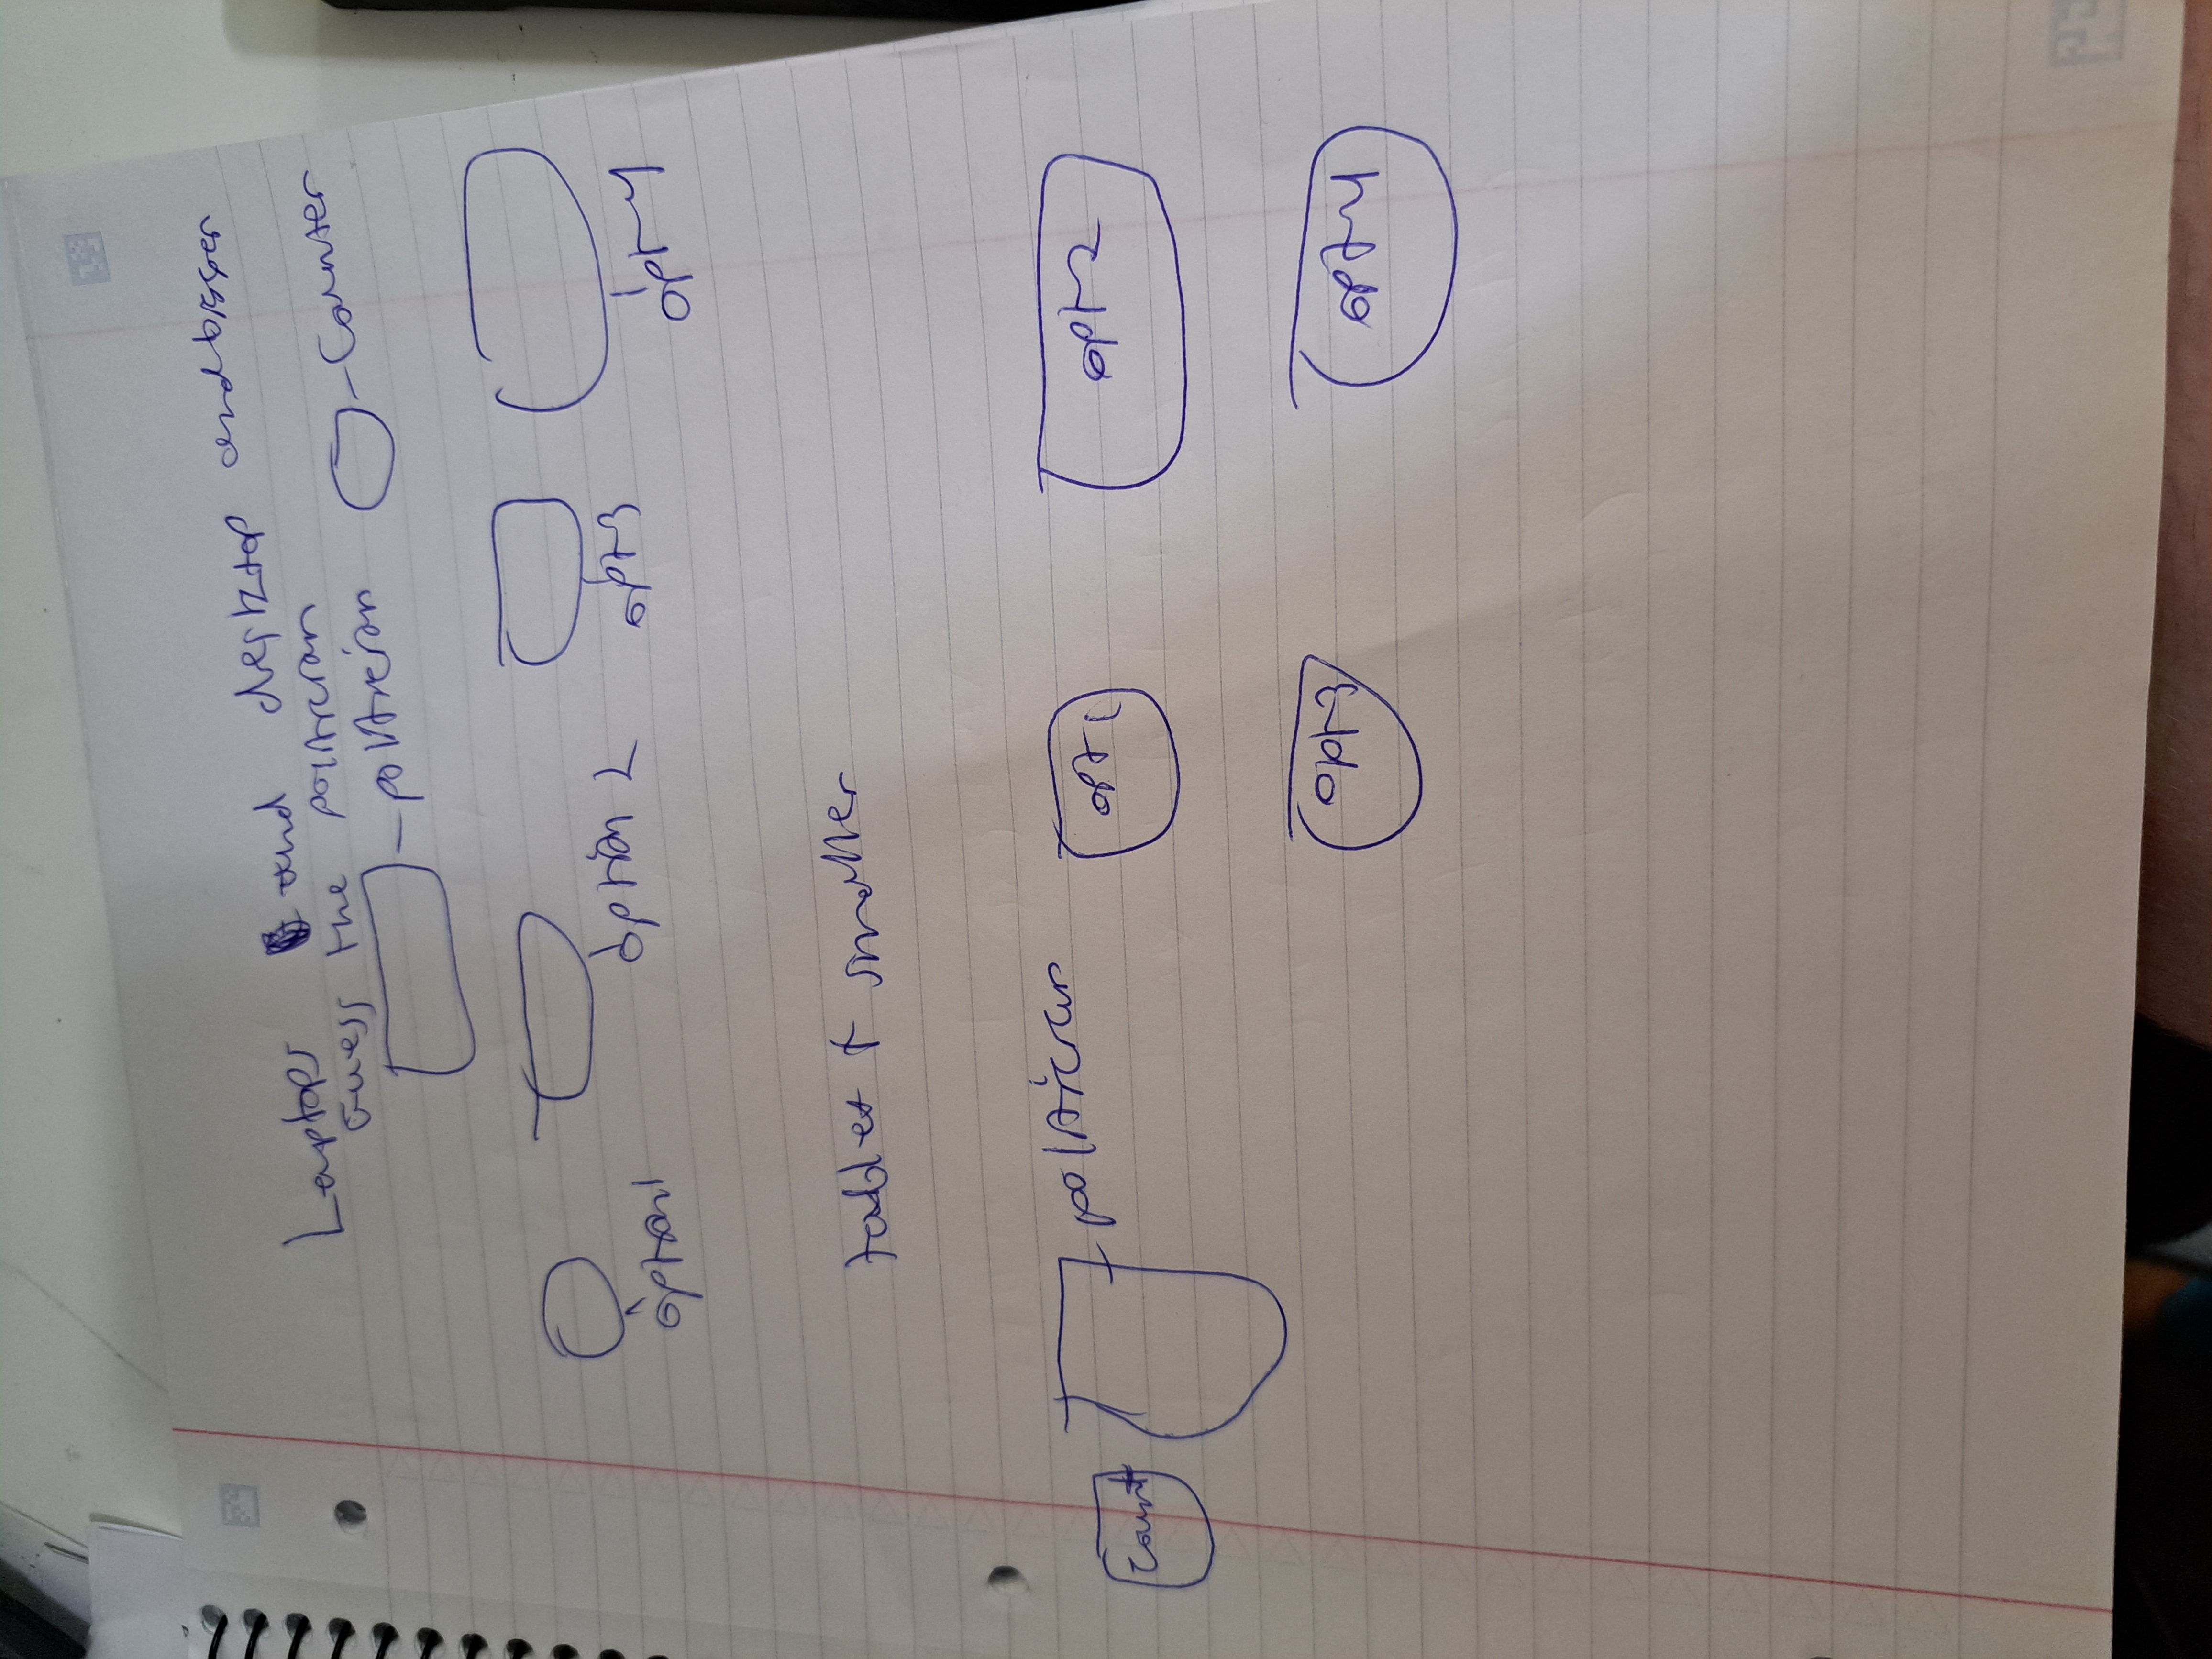 Laptops and desktop and bigger
Guess the politician
politician
Counter
option1
option 2
opt3
opt4
tablet + smaller
count
politician
opt1
opt2
opt3
opt4